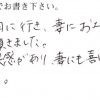 でお書き下さい。
に行き、妻にお土
頂きました。
感があり、妻にも喜